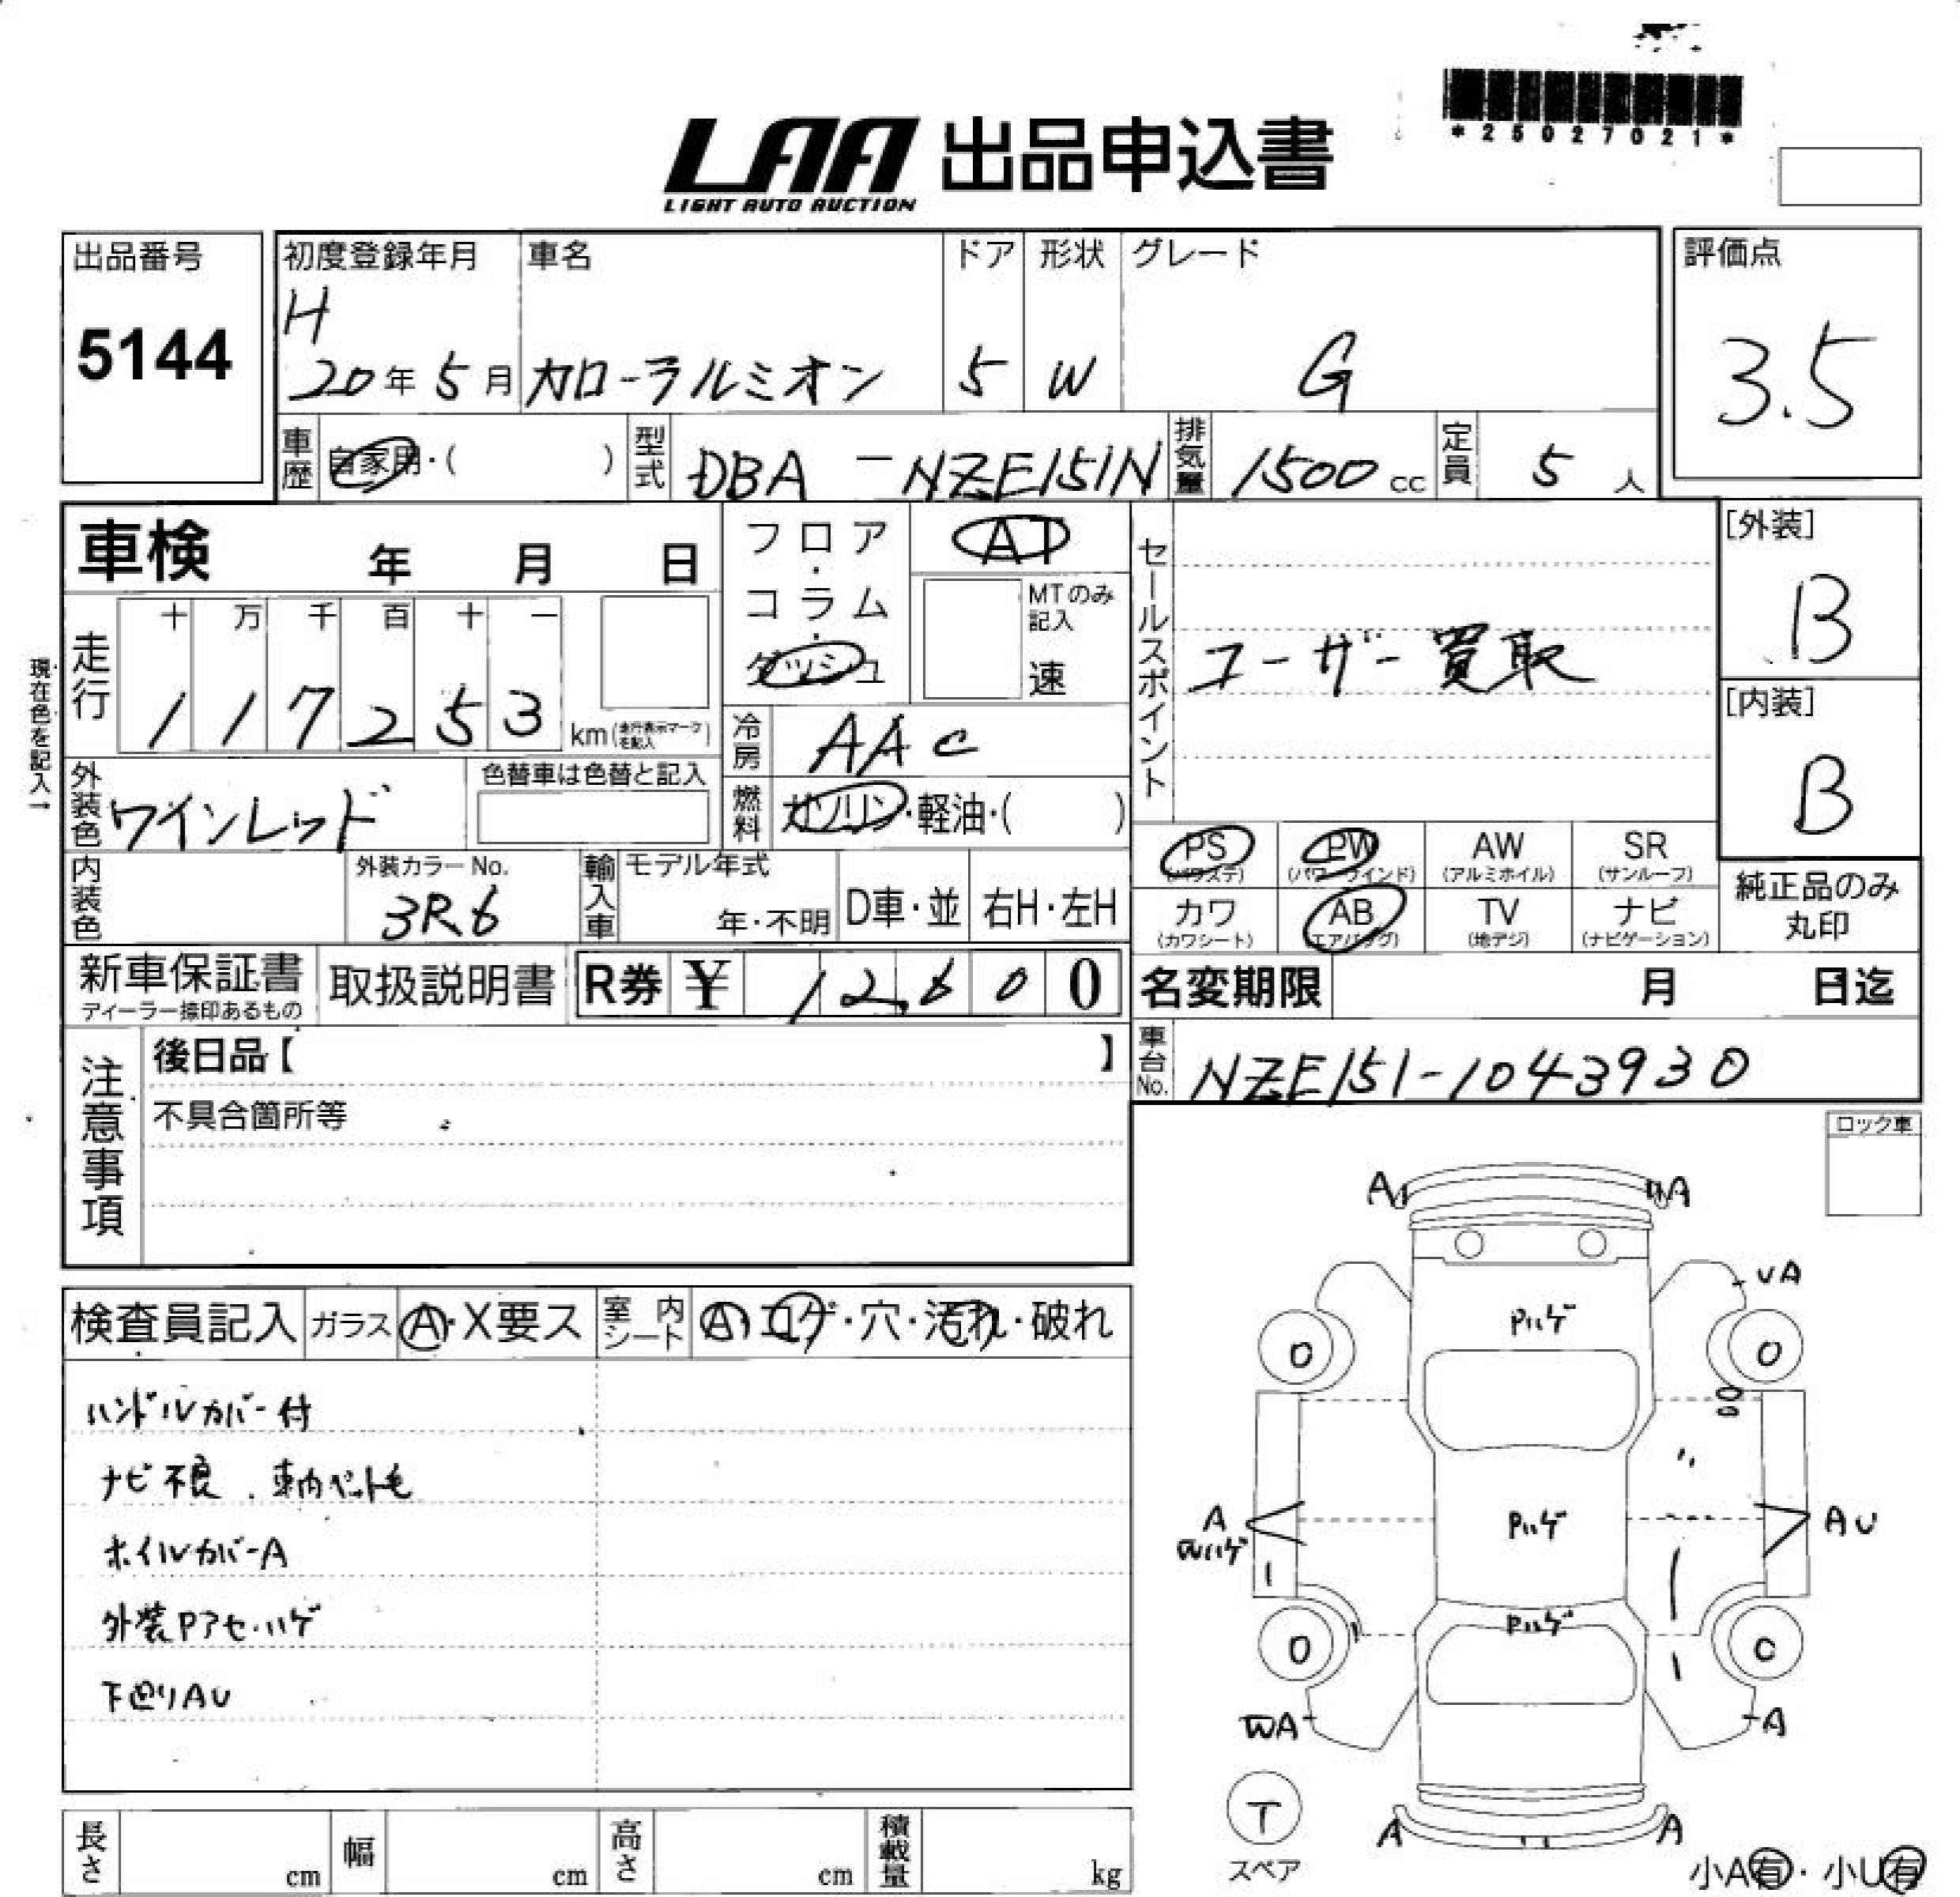 *25027021*
LAA 出品申込書
LIGHT AUTO AUCTION
出品番号 初度登録年月 車名 ドア 形状 グレード 評価点
5144 H 20年5月 カローラルミオン 5 W G 3.5
車歴 自家用・( ) 型式 DBA-NZE151N 排気量 1500cc 定員 5人
車検 年 月 日 フロア・コラム・ダッシュ AT セールスポイント [外装]
B
MTのみ記入 速
走行 十 万 千 百 十 一
1 1 7 2 5 3 km(走行表示マークを記入)
ユーザー買取
[内装]
B
現在色を記入→
冷房 AAC
外装色 ワインレッド 色替車は色替と記入 燃料 ガソリン・軽油・( )
PS PW AW SR
(パワステ) (パワーウインド) (アルミホイル) (サンルーフ)
内装色 外装カラーNo. 3R6 輸入車 モデル年式 年・不明 D車・並 右H・左H
カワ AB TV ナビ
(カワシート) (エアバッグ) (地デジ) (ナビゲーション)
純正品のみ
丸印
新車保証書 取扱説明書 R券 ¥ 12,600 名変期限 月 日迄
ディーラー捺印あるもの
注意事項 後日品【 】 車台No. NZE151-1043930
不具合箇所等
ロック車
検査員記入 ガラス A・X要ス 室内シート A・コゲ・穴・汚れ・破れ
ハンドルカバー付
ナビ不良. 車内ペット毛
ホイルカバーA
外装Pアセ・ハゲ
下廻りAU
A A
UA
Pハゲ
0 0
A Pハゲ AU
Wハゲ
Pハゲ
0 0
WA A
T
スペア
A A
小A有・小U有
長さ cm 幅 cm 高さ cm 積載量 kg